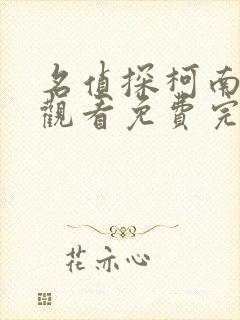 名偵探柯南
觀看免費完
花亦心